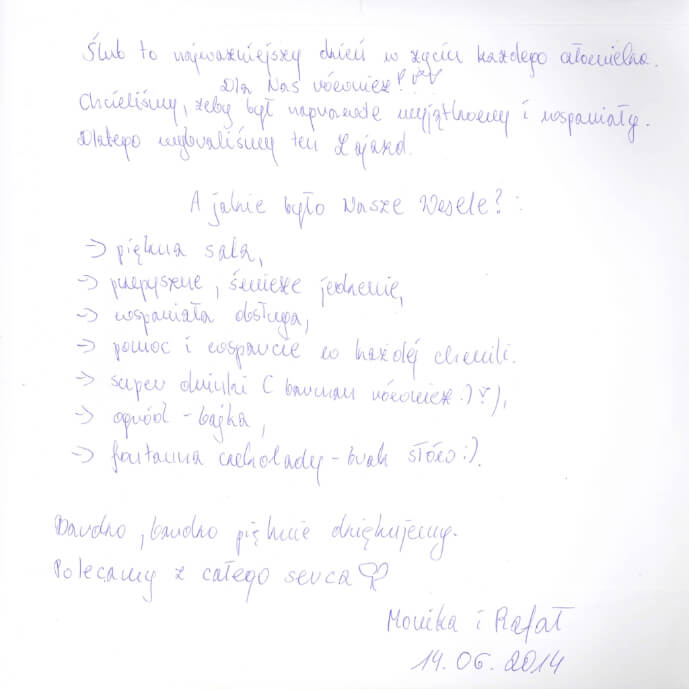 Ślub to najważniejszy dzień w życiu każdego człowieka.
Dla Nas również!
Chcieliśmy, żeby był naprawdę wyjątkowy i wspaniały.
Dlatego wybraliśmy ten Zajazd.
A jakie było Nasze Wesele?:
→ piękna sala,
→ przepyszne, świeże jedzenie,
→ wspaniała obsługa,
→ pomoc i wsparcie w każdej chwili.
→ super drinki (barman również :)),
→ ogród - bajka,
→ fontanna czekolady - brak słów :).
Bardzo, bardzo pięknie dziękujemy.
Polecamy z całego serca ♡
Monika i Rafał
14.06.2014